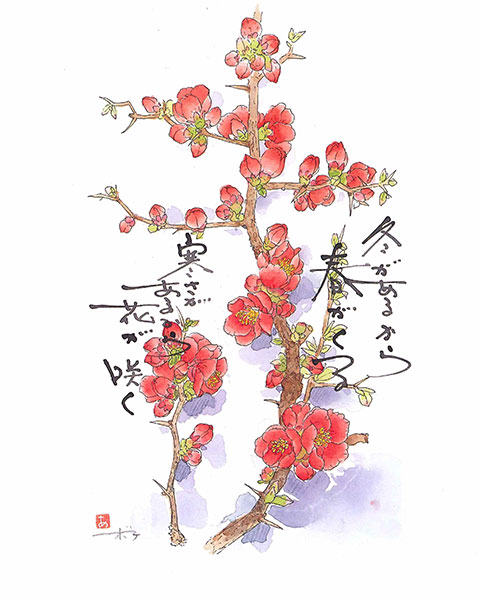 冬があるから
春がくる
寒さが
あるから
花が
咲く
ボケ
あ